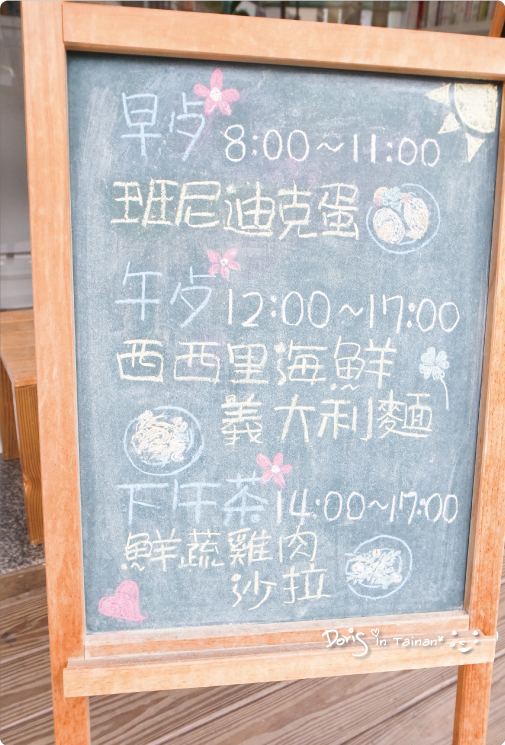 早点 8:00~11:00
班尼迪克蛋
午点 12:00~17:00
西西里海鮮
義大利麵
下午茶 14:00~17:00
鮮蔬雞肉
沙拉
Doris in Tainan*